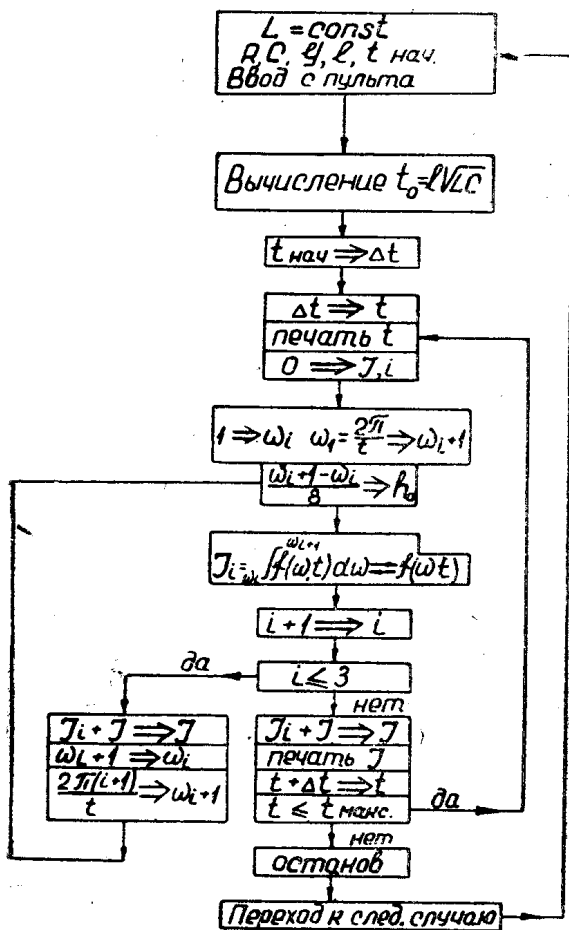 L = const
R, C, Ц, l, t нач.
Ввод с пульта
Вычисление t₀=l√LC
t нач ⇒ Δt
Δt ⇒ t
печать t
0 ⇒ J,i
1 ⇒ ωi ω₁ = 2π/t ⇒ ωi+1
ωi+1-ωi/8 ⇒ h₀
Ji = ωi∫ωi+1 f(ω,t)dω ⇌ f(ωt)
i + 1 ⇒ i
да
i ≤ 3
нет
Ji + J ⇒ J
ωi+1 ⇒ ωi
2π(i+1)/t ⇒ ωi+1
Ji + J ⇒ J
печать J
t + Δt ⇒ t
t ≤ t макс.
да
нет
останов
Переход к след. случаю